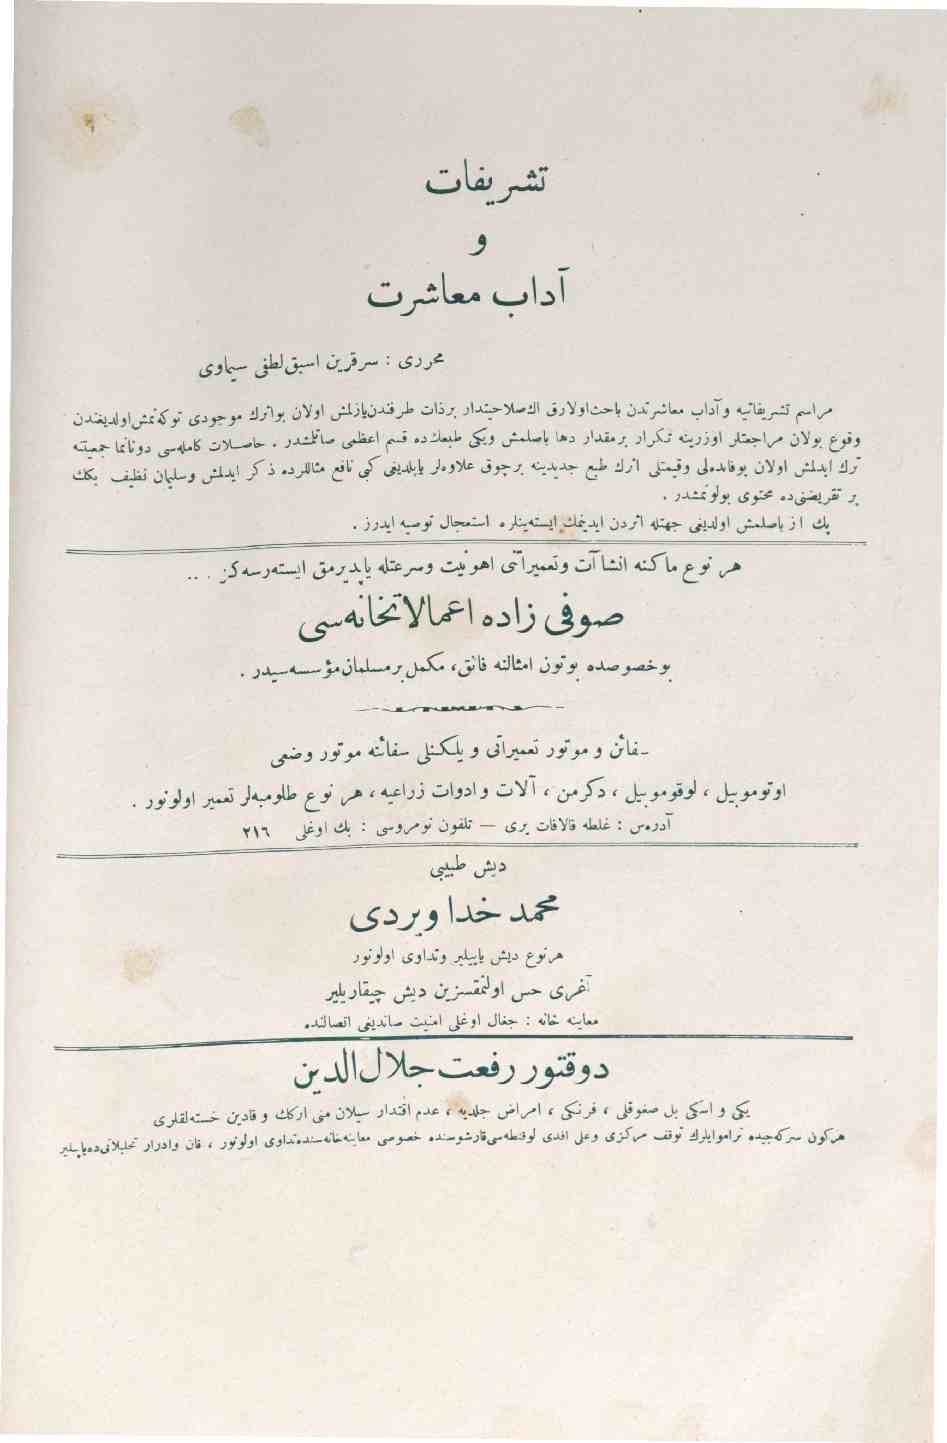 تشریفات
و
آداب معاشرت
محرری : سرقرین اسبق لطفی سیماوی
مراسم تشریفاتیه و آداب معاشرتدن باحث اولارق اڭ صلاحیتدار برذات طرفندن یازلمش اولان بو اثرك موجودی توكه‌نمش اولدیغندن
وقوع بولان مراجعتلر اوزرینه تكرار بر مقدار دها باصلمش ویكی طبعڭده قسم اعظمی صاتلمشدر . حاصلات كامله‌سی دونانما جمعیتنه
ترك ایدلمش اولان بوفائده‌لی وقیمتلی اثرك طبع جدیدینه برچوق علاوه‌لر یاپلدیغی كبی نافع مثاللرده ذكر ایدلمش وسلیمان نظیف بكك
بر تقریضنی‌ده محتوی بولونمشدر .
پك از باصلمش اولدیغی جهتله اثردن ایدینمك ایسته‌ینلره استعجال توصیه ایدرز .
هر نوع ماكنه انشاآت وتعمیراتنی اهونیت وسرعتله یاپدیرمق ایسته‌رسه‌كز . . .
صوفی زاده اعمالاتخانه‌سی
بوخصوصده بوتون امثالنه فائق، مكمل بر مسلمان مؤسسه‌سیدر .
سفائن و موتور تعمیراتی و یلكنلی سفائنه موتور وضعی
اوتوموبیل ، لوقوموبیل ، دكرمن ، آلات و ادوات زراعیه ، هر نوع طلومبه‌لر تعمیر اولونور .
آدره‌س : غلطه قالافات یری — تلفون نومروسی : بك اوغلی ٢١٦
دیش طبیبی
محمد خدا ویردی
هرنوع دیش یاپیلیر وتداوی اولونور
آغری حس اولنمقسزین دیش چیقاریلیر
معاینه خانه : جغال اوغلی امنیت صاندیغی اتصالنده
دوقتور رفعت جلال‌الدین
یكی و اسكی بل صغوقلی ، فرنكی ، امراض جلدیه ، عدم اقتدار سیلان منی ارككك و قادین خسته‌لقلری
هركون سركه‌جیده تراموایلرك توقف مركزی وعلی افندی لوقنطه‌سی قارشوسنده خصوصی معاینه‌خانه‌سنده تداوی اولونور ، قان وادرار تحلیلاتی‌ده یاپیلیر